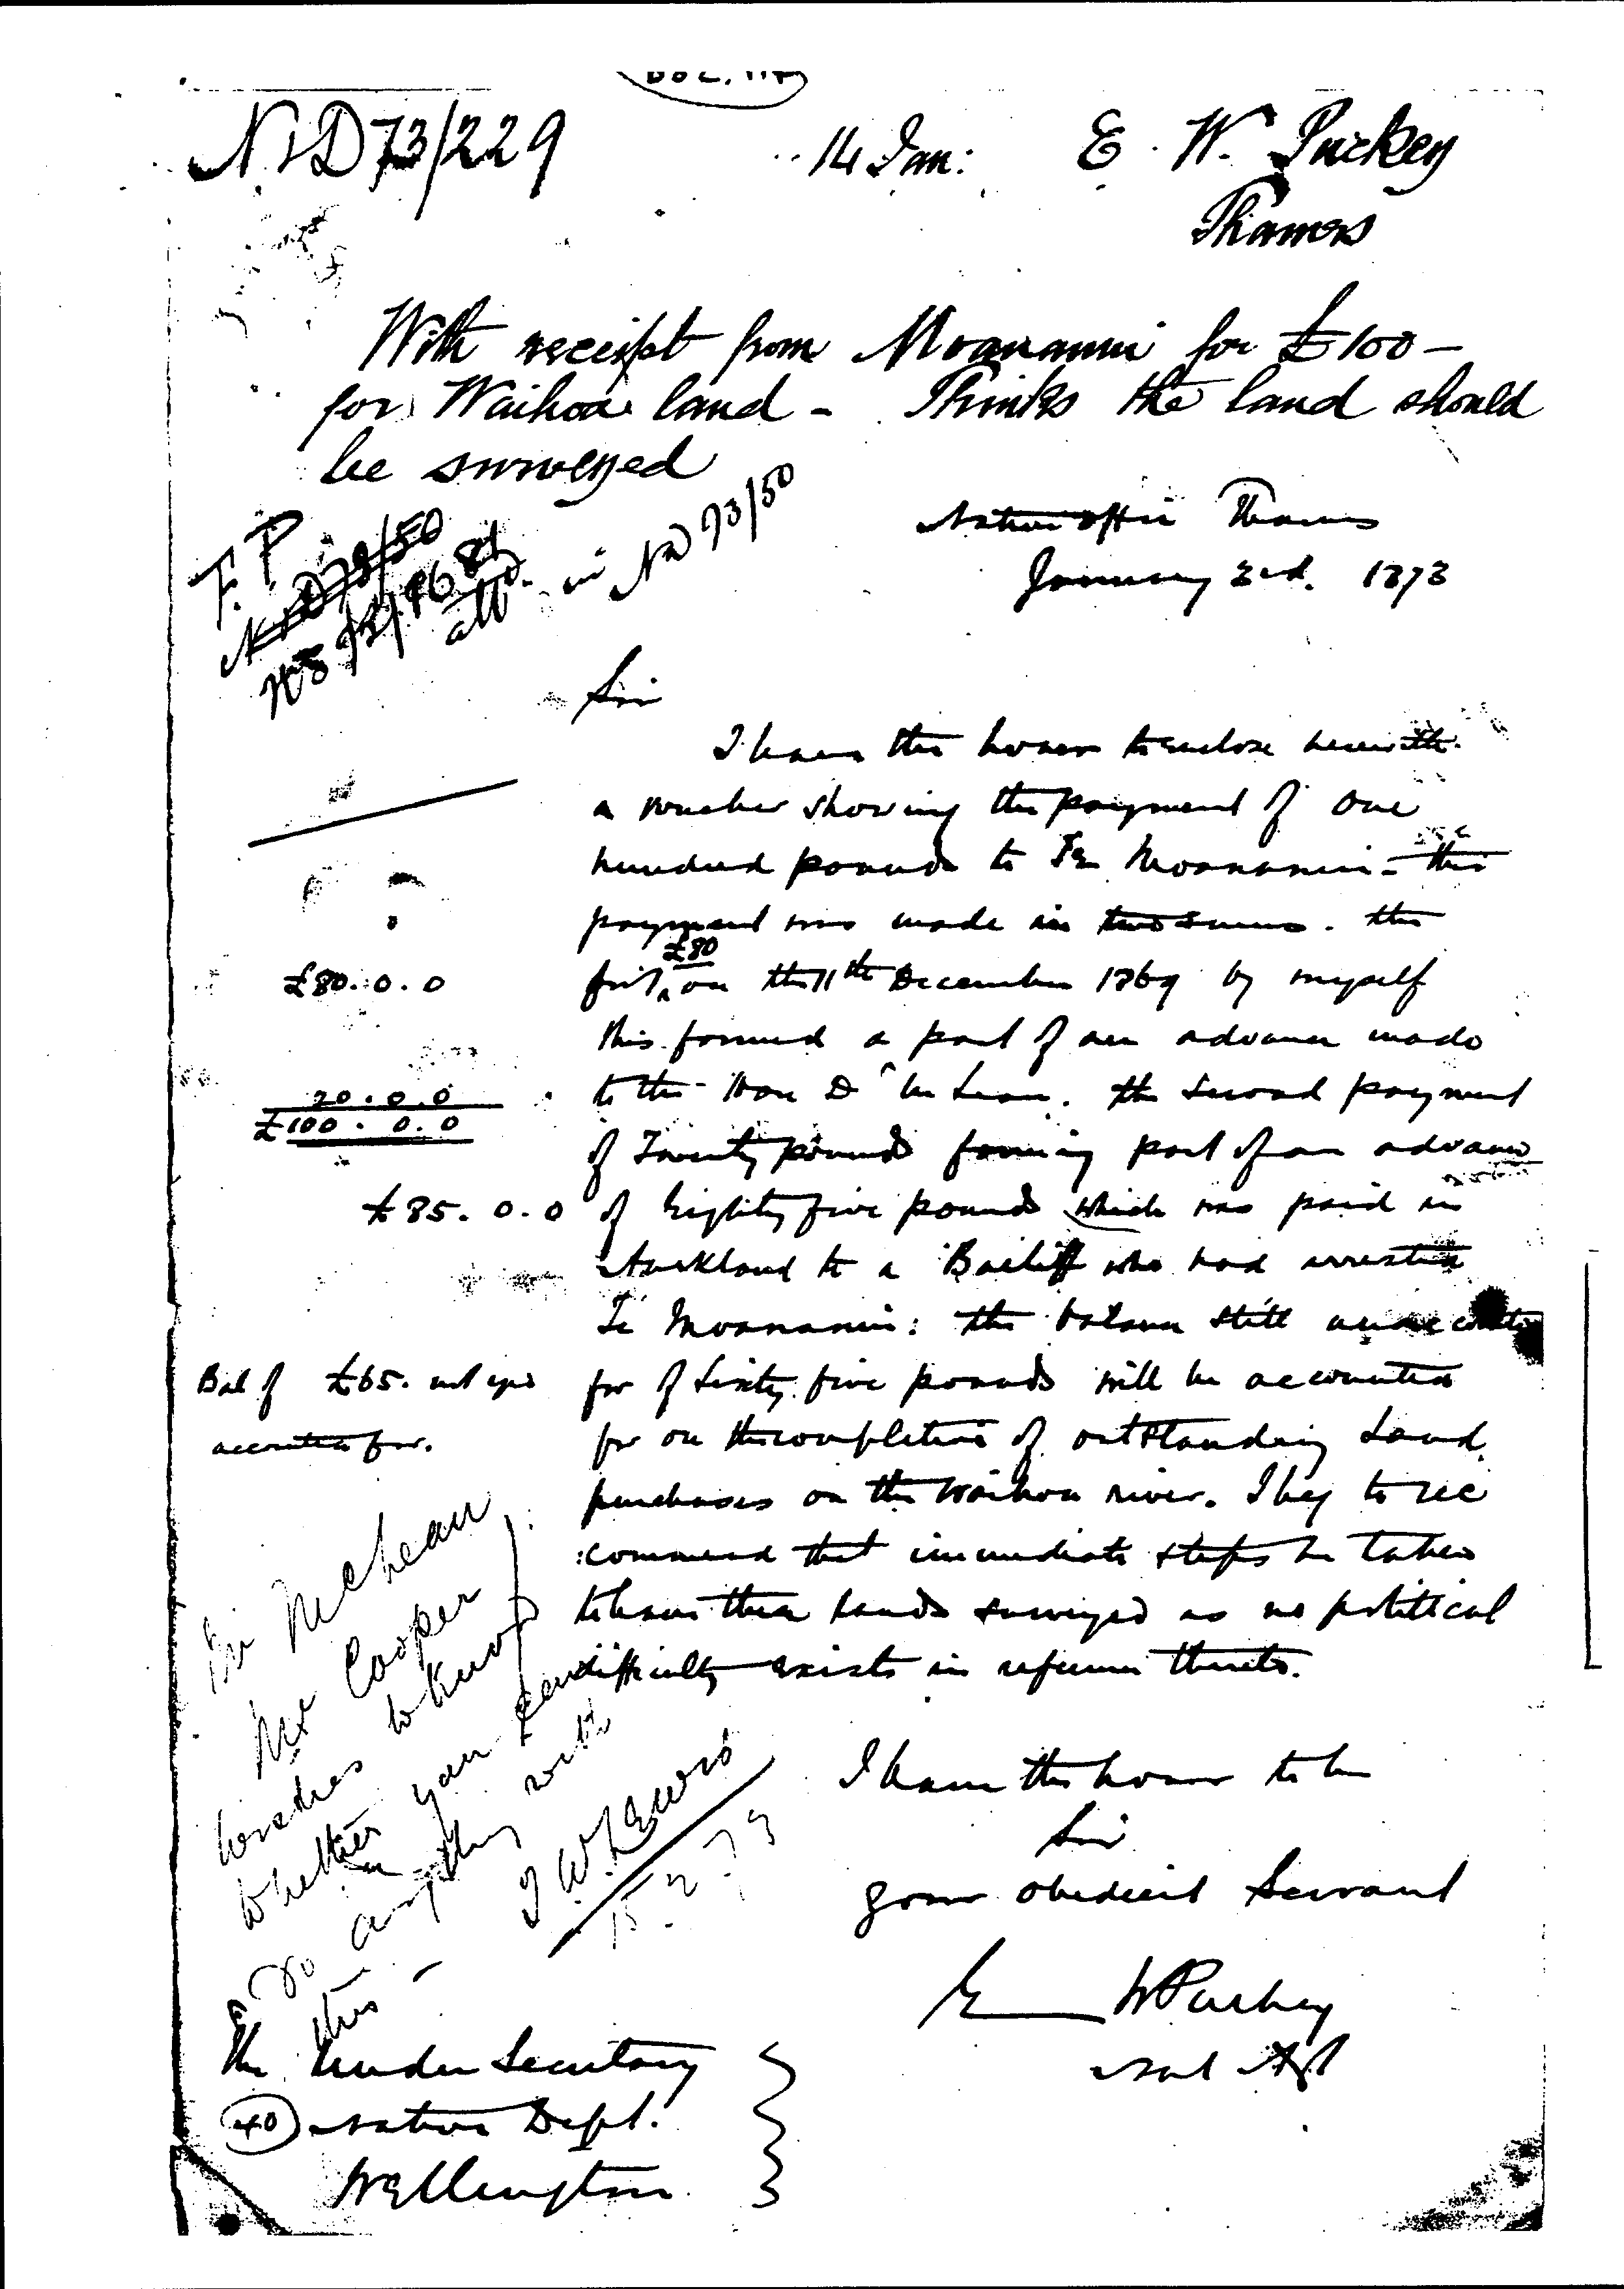 N & D 73/229
14 Jan:
E. W. Puckey
Thames
With receipt from Moananui for £100 –
for Waihou land – Thinks the land should
be surveyed
F.P.
N & D 73/50
attd. in ND 73/50
Native Office Thames
January 3rd. 1873
Sir
I have the honor to enclose herewith
a voucher showing the payment of one
hundred pounds to Te Moananui – this
payment was made in two sums. the
£80
£80.0.0
first on the 11th December 1869 by myself
this formed a part of an advance made
20.0.0
to the Hon D McLean. the second payment
£100.0.0
of Twenty pounds forming part of an advance
£85.0.0
of Eighty five pounds which was paid in
Auckland to a Bailiff who had arrested
Te Moananui: the balance still unaccounted
Bal of £65. not yet
for of Sixty five pounds will be accounted
accounted for.
for on the completion of outstanding Land
purchases on the Waihou river. I beg to rec
:commend that immediate steps be taken
to have these lands surveyed as no political
difficulty exists in reference thereto.
Mr McLean
Mr Cooper
wishes to know
whether you can
do anything with
this –
J W Lewis
15.2.73
I have the honor to be
Sir
your obedient Servant
E W Puckey
Nat Agt
The Under Secretary
40
Native Dept.
Wellington